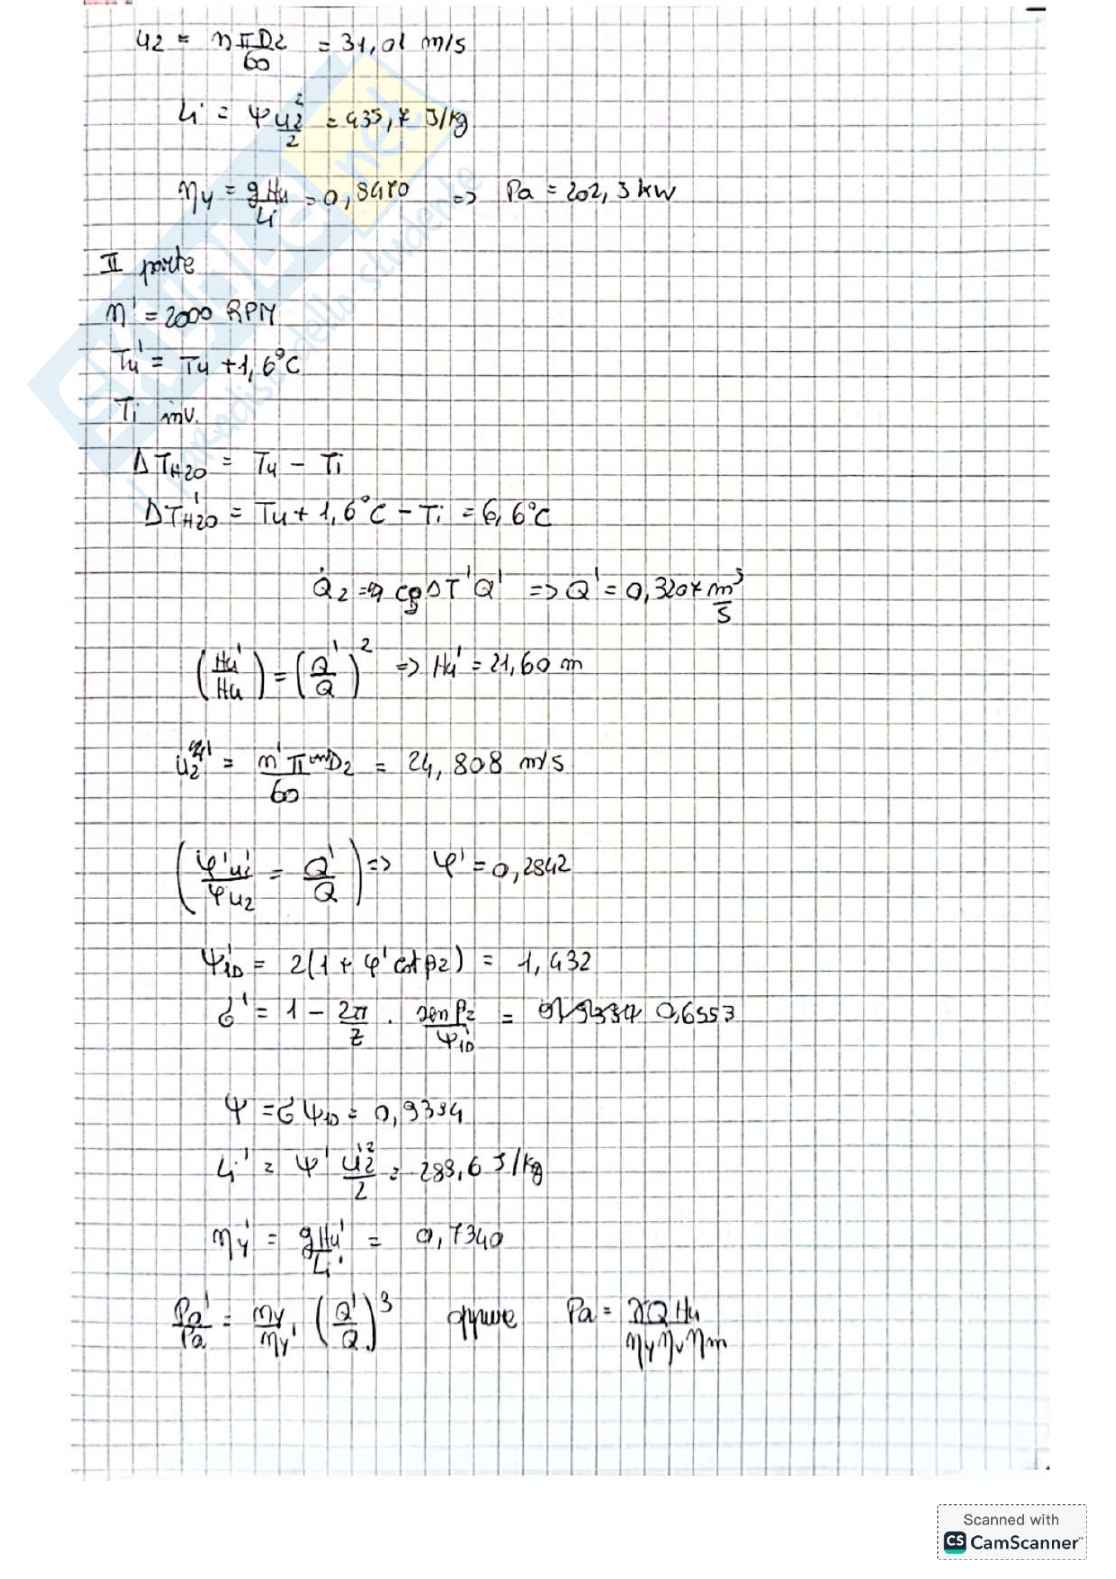 u2 = nπD2/60 = 31,01 m/s
Li = ψ u2²/2 = 435,7 J/kg
ηy = gHu/Li = 0,8470 => Pa = 202,3 kW
II parte
n' = 2000 RPM
Tu' = Tu + 1,6°C
Ti inv.
ΔTH2O = Tu - Ti
ΔT'H2O = Tu + 1,6°C - Ti = 6,6°C
Q̇2 = cρΔT'Q' => Q' = 0,3207 m³/s
(Hu'/Hu) = (Q'/Q)² => Hu' = 21,60 m
u2' = n'πD2/60 = 24,808 m/s
(φ'u2'/φu2 = Q'/Q) => φ' = 0,2842
ψ'iD = 2(1 + φ' cotβ2) = 1,432
σ' = 1 - 2π/z · senβ2/ψ'iD = 0,6553
ψ = σψiD = 0,9394
Li' = ψ' u2'²/2 = 288,6 J/kg
ηy' = gHu'/Li' = 0,7340
Pa'/Pa = ηy/ηy' (Q'/Q)³ oppure Pa = γQHu/ηyηvηm
Scanned with
CS CamScanner